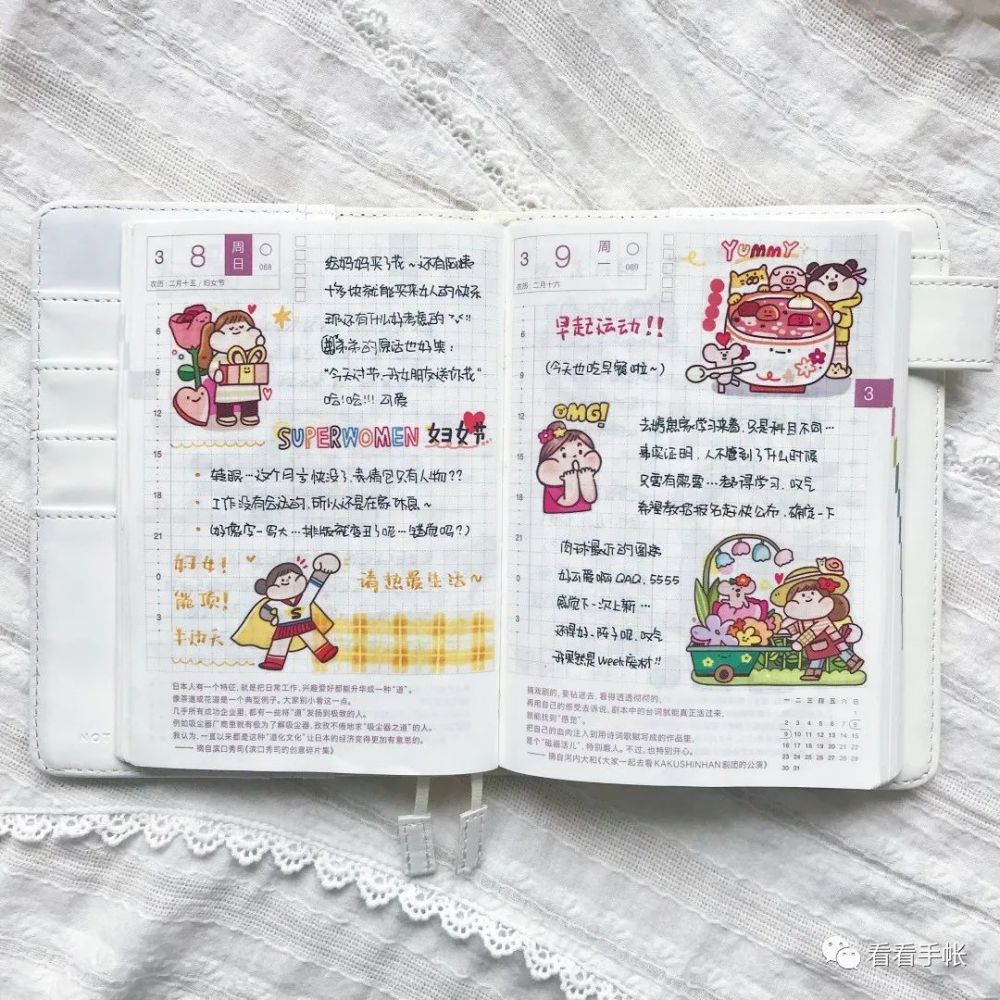 3 8 周日 068
农历:二月十五/妇女节
给妈妈买了花~还有口姨
十多块就能买来女人的快乐
那还有什么好考虑的
弟弟的原话也好笑:
"今天过节~我女朋友送你花"
哈!哈!!! 可爱
SUPERWOMEN 妇女节
转眼…这个月 快没了,表情包只有人物??
工作没有会活的,所以还是在家休息~
(好像字一写大…排版就变丑了呢…错觉吗?)
妇女!
能顶!
半边天
请热爱生活~
S
6
9
12
15
18
21
0
3
日本人有一个特征,就是把日常工作、兴趣爱好都能升华成一种"道"。
像茶道或花道是一个典型例子。大家别小看这一点。
几乎所有成功企业里,都有一些将"道"发扬到极致的人。
例如吸尘器厂商里就有极为了解吸尘器,孜孜不倦地求"吸尘器之道"的人。
我认为,一直以来都是这种"道化文化"让日本的经济变得更加有意思的。
——摘自滨口秀司《滨口秀司的创意碎片集》
3 9 周一 069
农历:二月十六
YUMMY
早起运动!!
(今天也吃早餐啦~)
OMG!
3
去妈妈家学习来着,只是科目不同…
事实证明,人不管到了什么时候
只要有需要…都得学习,叹气
希望教招报名赶快公布,确定一下
肉球最近的图案
好可爱啊QAQ,5555
感觉下一次上新…
还得好一阵子呢,叹气
我果然是Week废材!!
6
9
12
15
18
21
0
3
搞戏剧的,要钻进去,看得透透彻彻的。
再用自己的感受去诉说,剧本中的台词就能真正活过来,
就能找到"感觉"。
把自己的血肉注入到用诗词歌赋写成的作品里,
是个"磁器活儿",特别磨人。不过,也特别开心。
——摘自河内大和《大家一起去看KAKUSHINHAN剧团的公演》
一 二 三 四 五 六 日
1
2 3 4 5 6 7 8
9 10 11 12 13 14 15
16 17 18 19 20 21 22
23 24 25 26 27 28 29
30 31
看看手帐